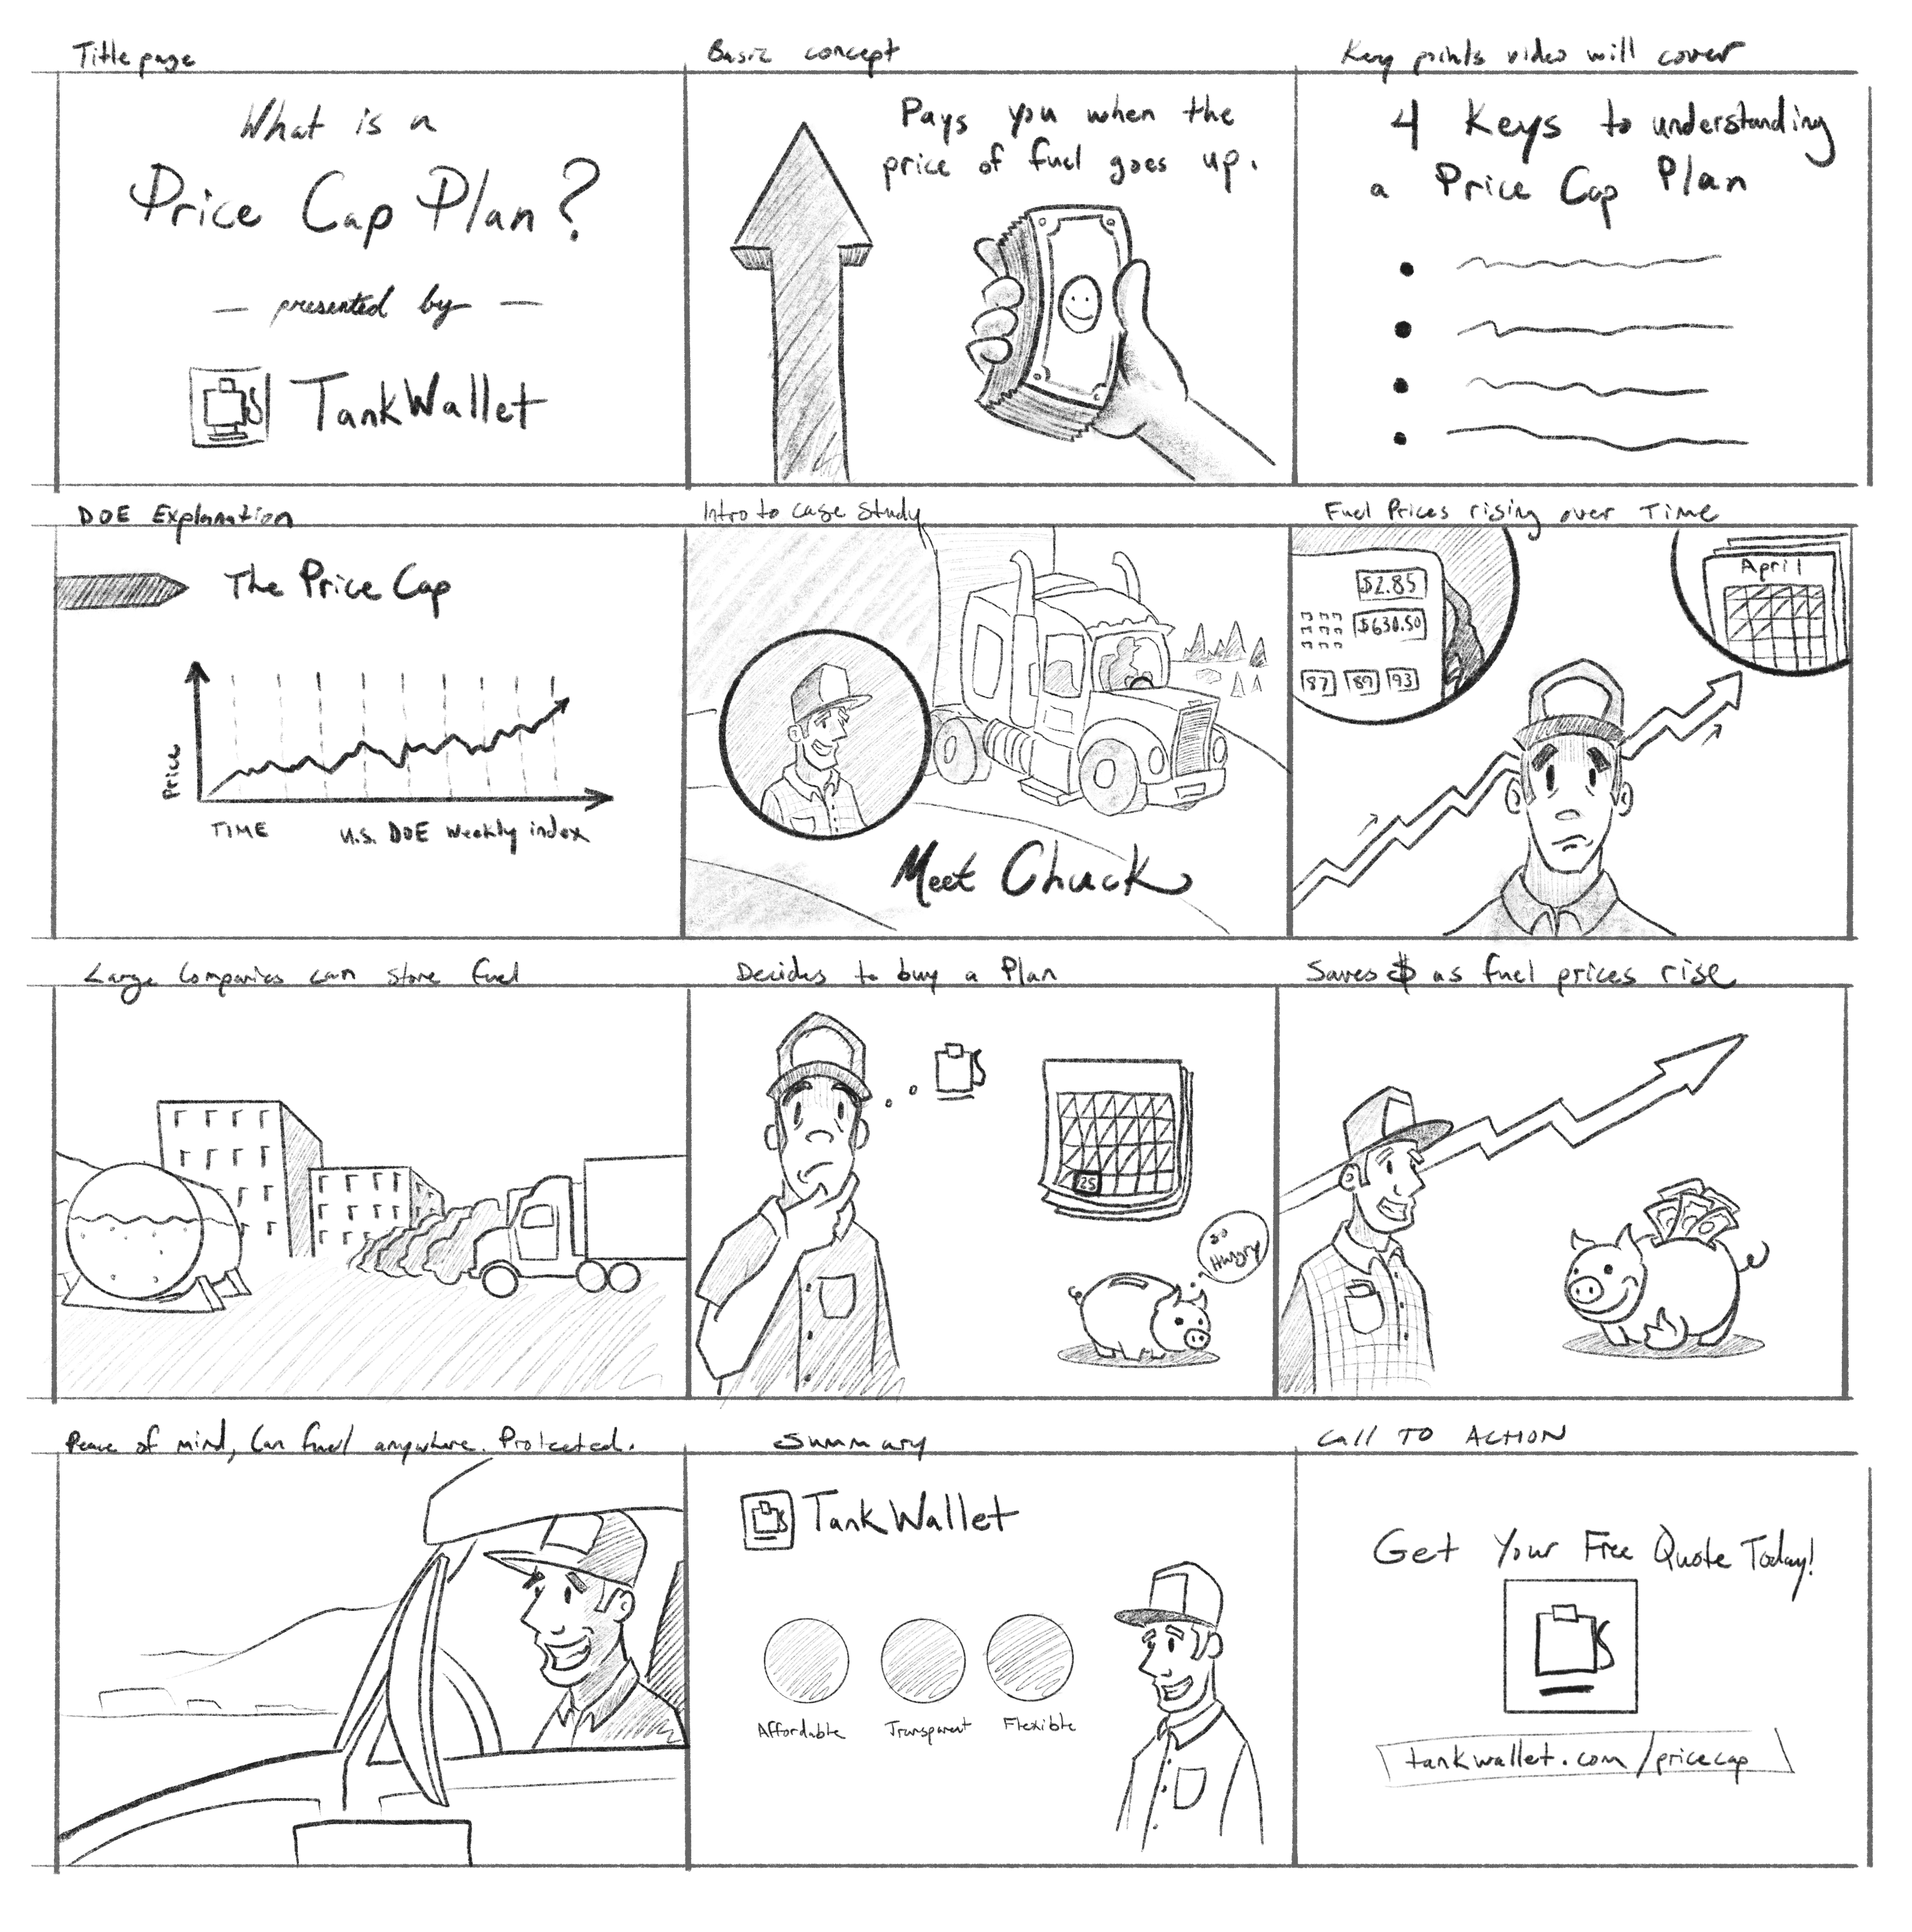 Title page
What is a
Price Cap Plan?
— presented by —
TankWallet
Basic concept
Pays you when the
price of fuel goes up.
Key points video will cover
4 Keys to understanding
a Price Cap Plan
DOE Explanation
The Price Cap
Price
TIME
U.S. DOE Weekly index
Intro to case study
Meet Chuck
Fuel Prices rising over Time
$2.85
$630.50
87 89 93
April
Large Companies can store fuel
Decides to buy a Plan
25
so
Hungry
Saves $ as fuel prices rise
Peace of mind, Can fuel anywhere. Protected.
Summary
TankWallet
Affordable
Transparent
Flexible
CALL TO ACTION
Get Your Free Quote Today!
tankwallet.com/pricecap